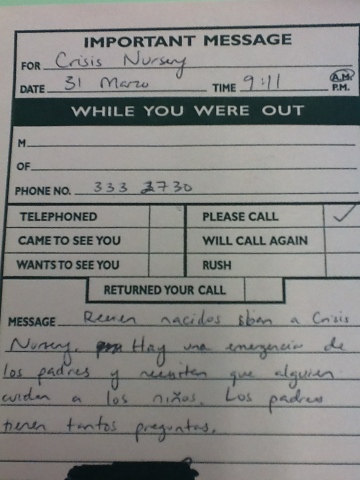 IMPORTANT MESSAGE
FOR Crisis Nursery
DATE 31 Marzo TIME 9:11 A.M.
P.M.
WHILE YOU WERE OUT
M
OF
PHONE NO. 333 2730
TELEPHONED PLEASE CALL ✓
CAME TO SEE YOU WILL CALL AGAIN
WANTS TO SEE YOU RUSH
RETURNED YOUR CALL
MESSAGE Recien nacidos iban a Crisis
Nursery. Hay una emergencia de
los padres y necesitan que alguien
cuiden a los niños. Los padres
tienen tantos preguntas.